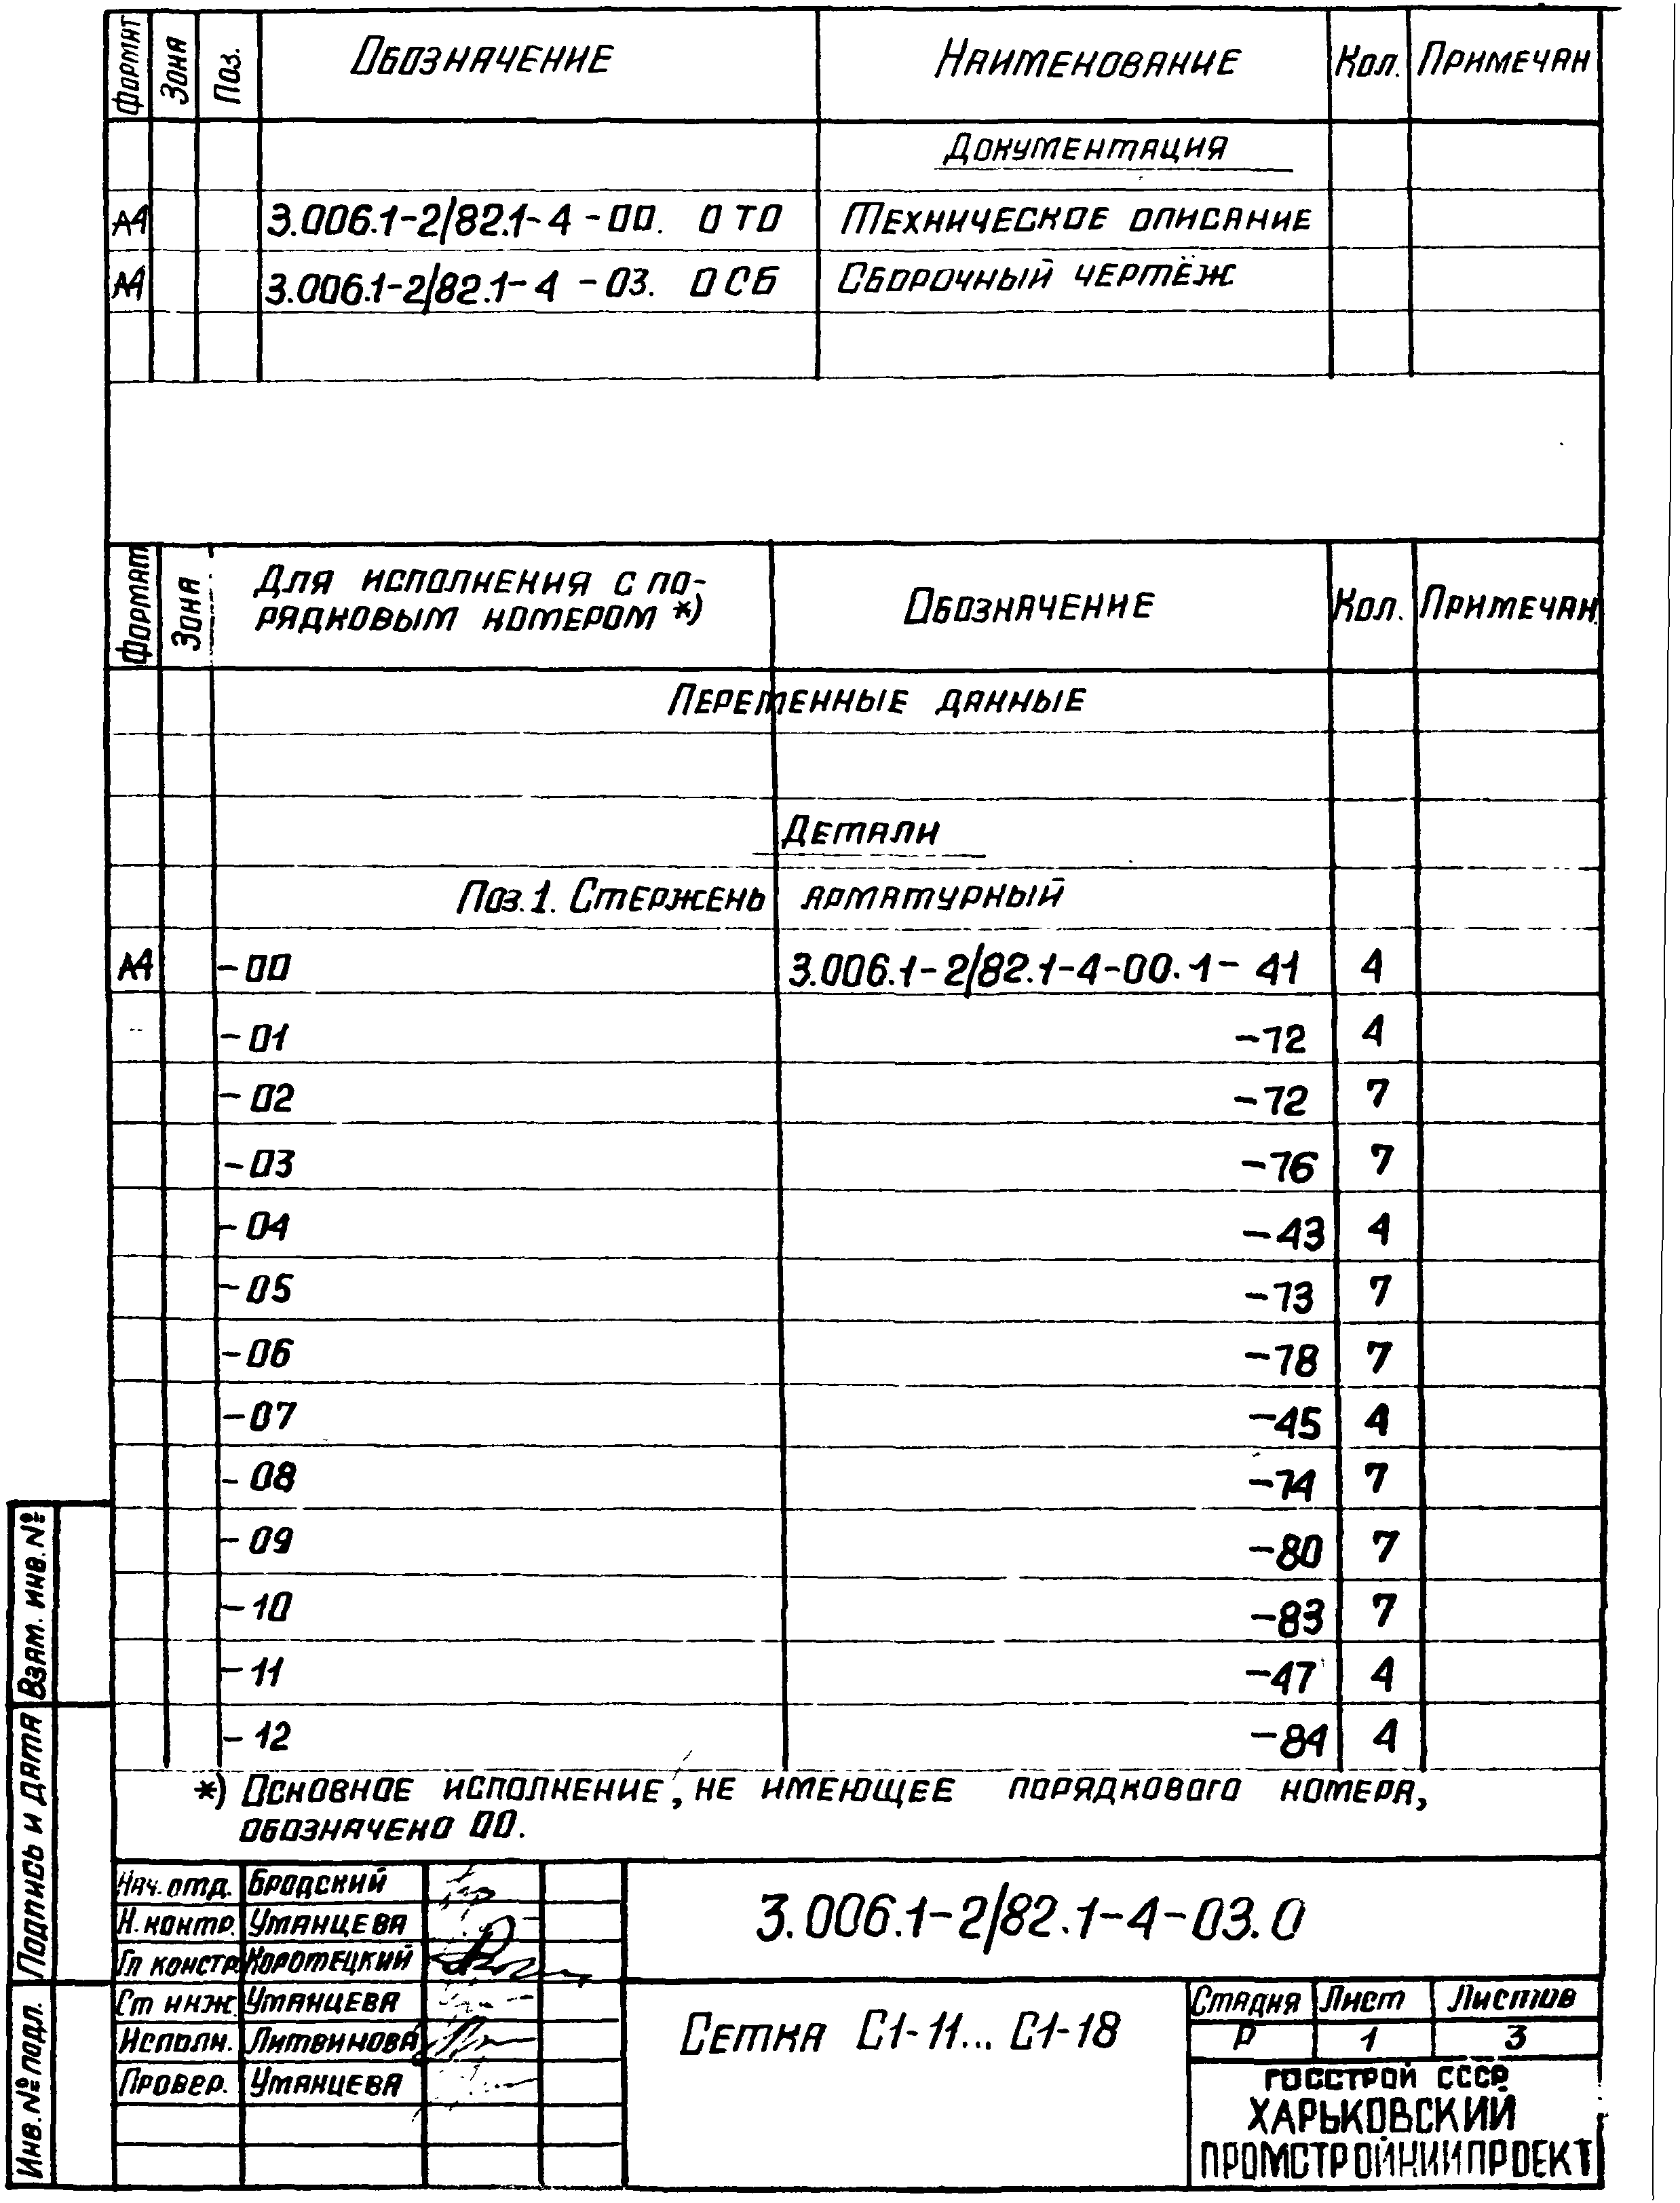 Формат Зона Поз. Обозначение Наименование Кол. Примечан
Документация
А4 3.006.1-2/82.1-4-00. 0 ТО Техническое описание
А4 3.006.1-2/82.1-4-03. 0 СБ Сборочный чертёж
Формат Зона Для исполнения с по- Обозначение Кол. Примечан.
рядковым номером *)
Переменные данные
Детали
Поз.1. Стержень арматурный
А4 -00 3.006.1-2/82.1-4-00.1-41 4
-01 -72 4
-02 -72 7
-03 -76 7
-04 -43 4
-05 -73 7
-06 -78 7
-07 -45 4
-08 -74 7
-09 -80 7
-10 -83 7
-11 -47 4
-12 -84 4
*) Основное исполнение, не имеющее порядкового номера,
обозначено 00.
Нач. отд. Бродский
Н. контр. Уманцева
Гл констр. Коротецкий
Ст инж. Уманцева
Исполн. Литвинова
Провер. Уманцева
3.006.1-2/82.1-4-03.0
Сетка С1-11... С1-18
Стадия Лист Листов
Р 1 3
ГОССТРОЙ СССР
ХАРЬКОВСКИЙ
ПРОМСТРОЙНИИПРОЕКТ
Взам. инв. №
Подпись и дата
Инв. № подл.